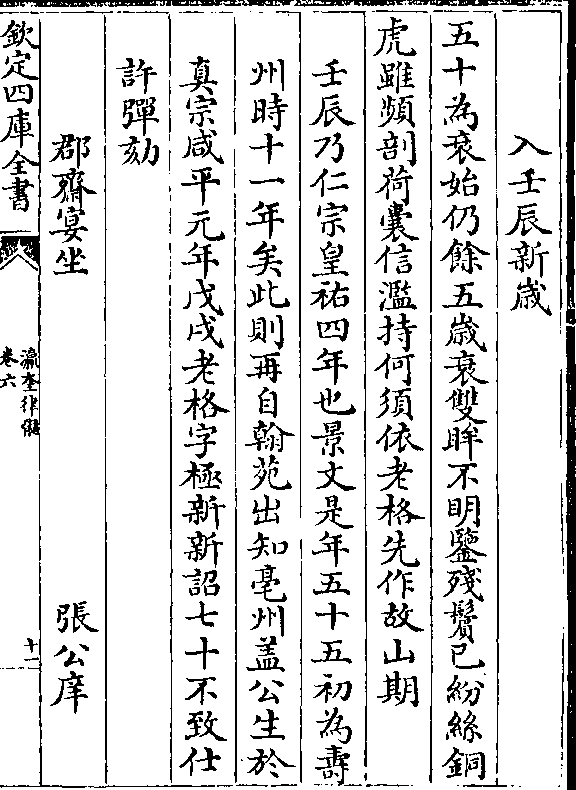 入壬辰新歳
五十為衰始仍餘五歳衰雙眸不明鑒殘鬢已紛絲銅
虎雖頻剖荷囊信濫持何須依老格先作故山期
壬辰乃仁宗皇祐四年也景文是年五十五初為壽
州時十一年矣此則再自翰苑出知亳州盖公生於
真宗咸平元年戊戌老格字極新新詔七十不致仕
許彈劾
郡齋宴坐 張公庠
欽定四庫全書
瀛奎律髓
卷六
十二